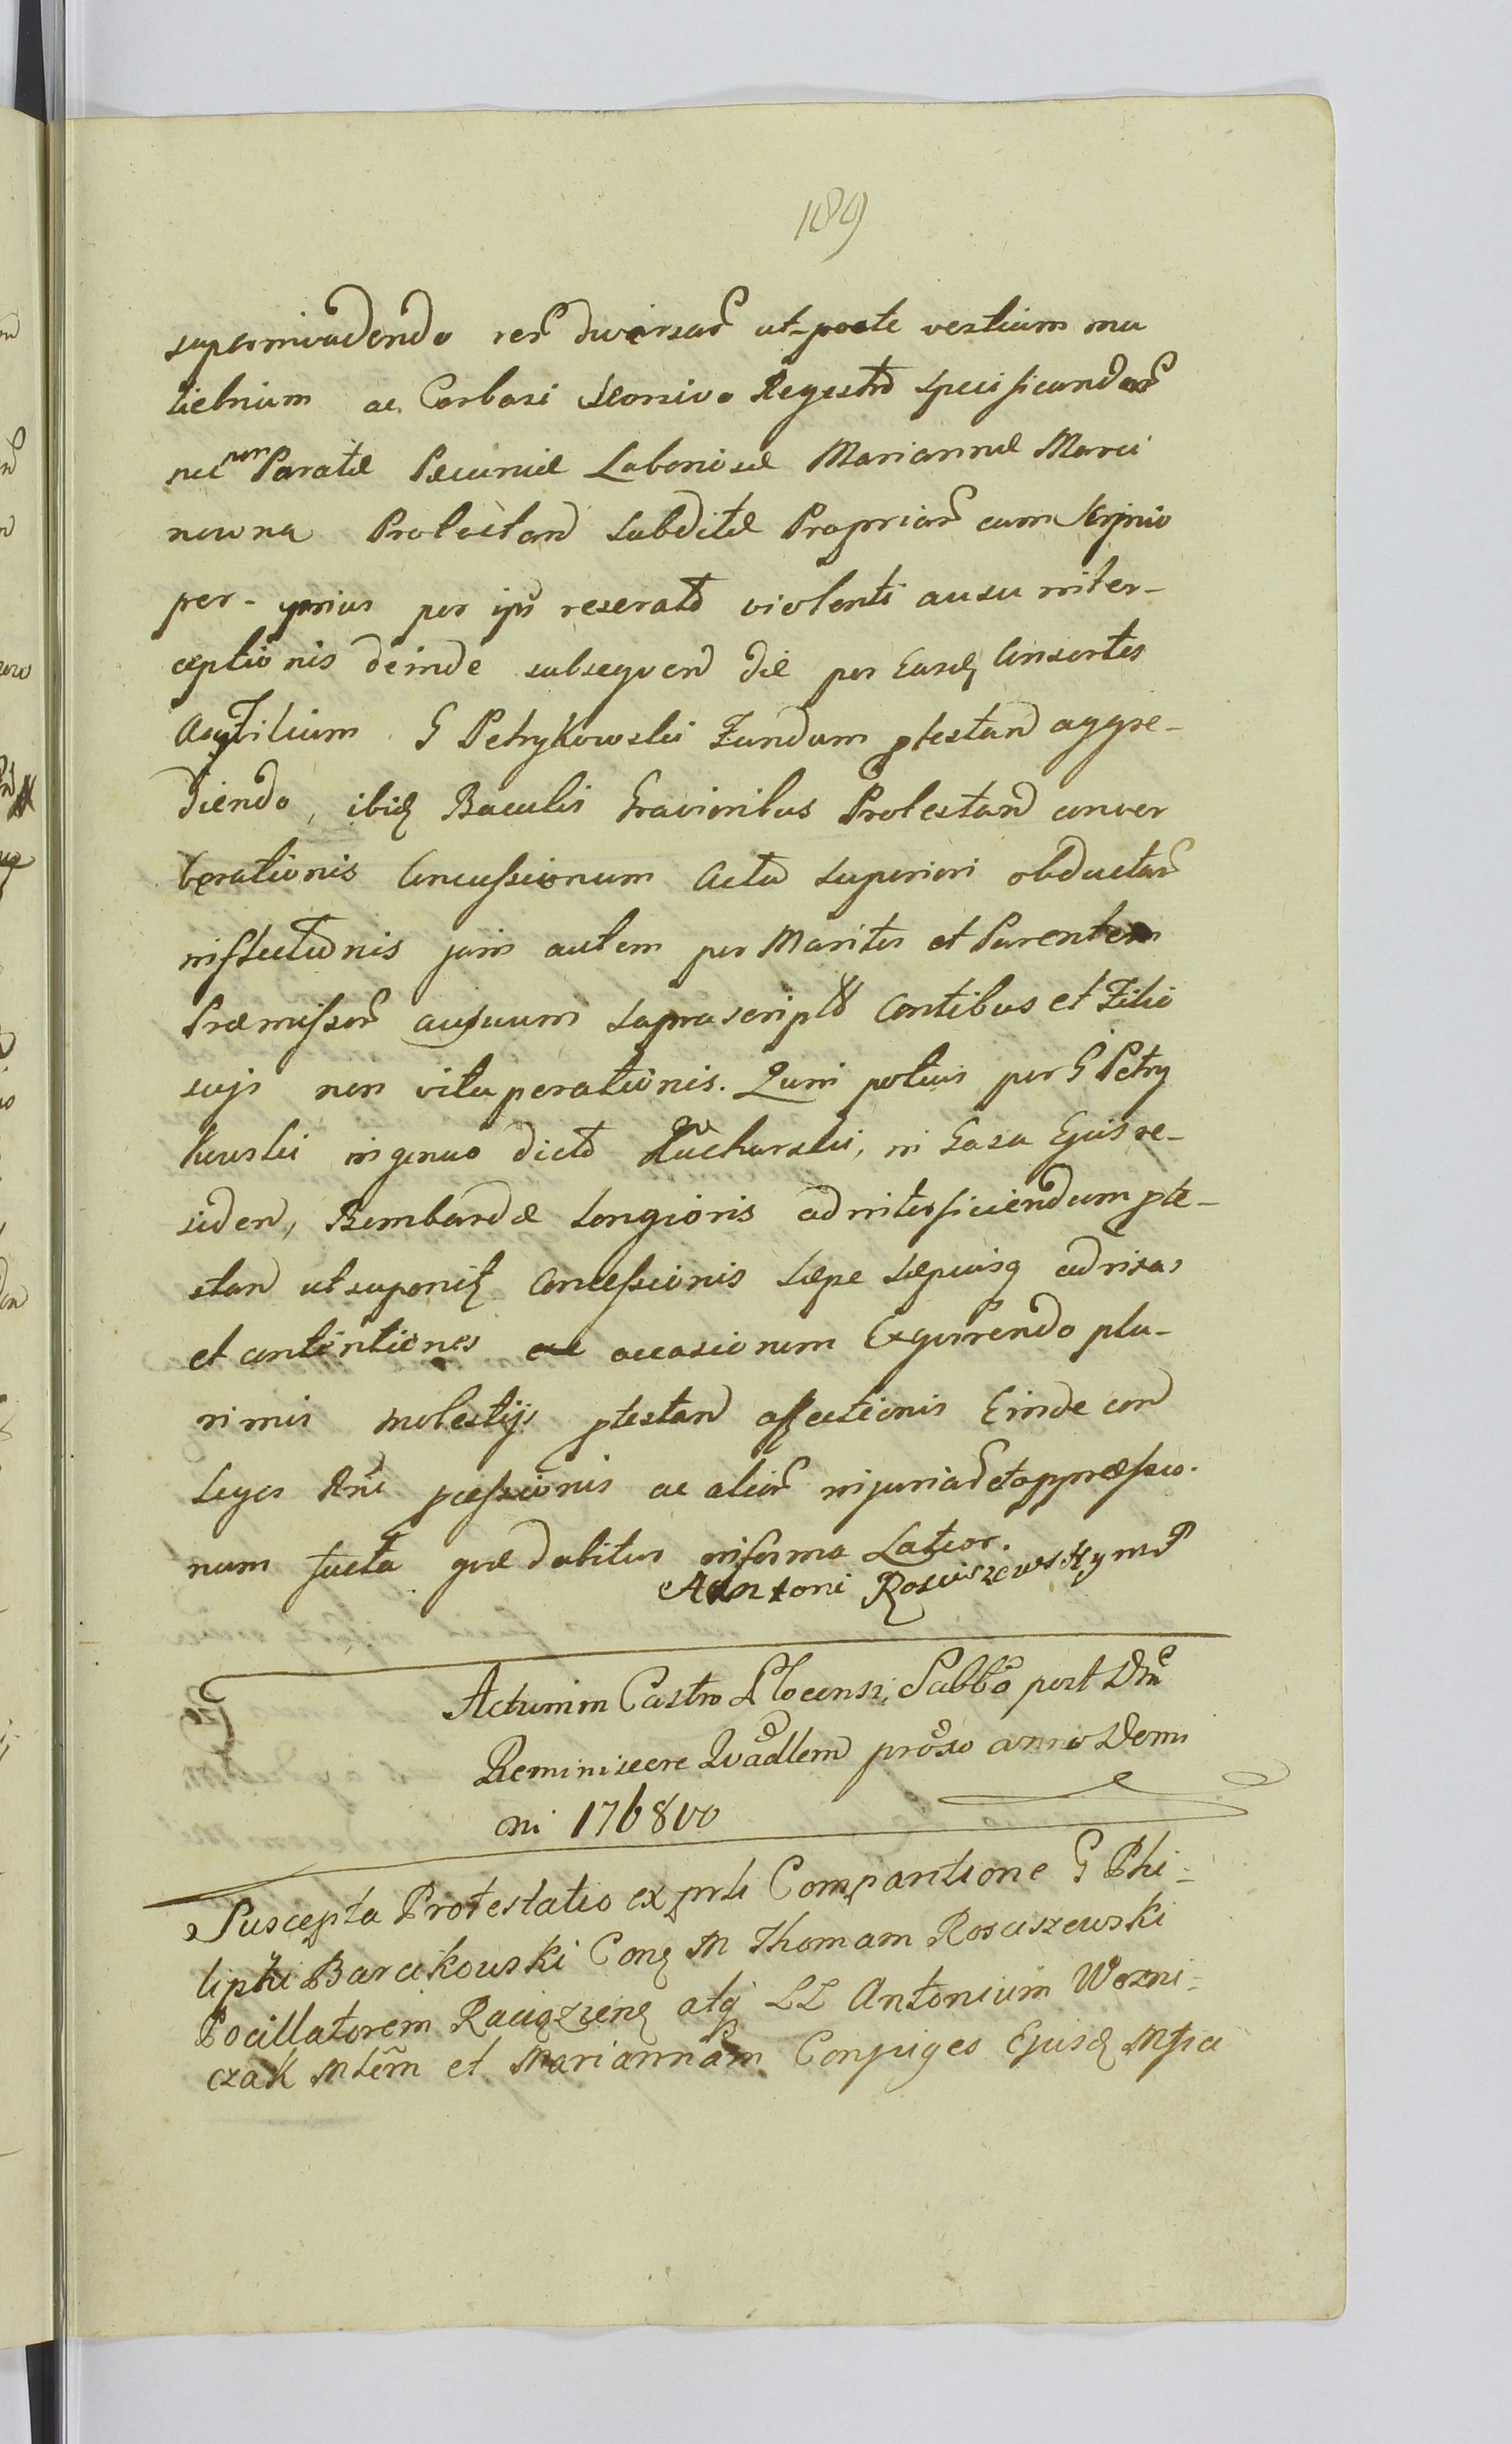 189
superinvadendo rer̃ diversar̃ ut-poete vestium mu
liebrium ac Carbasi seorsivo Regestro specificandar̃
nec non Paratæ Pecuniæ Laboriosæ Mariannæ Marci
nowna Protestan subditæ Propriar̃ cum scrinio
per- prius per ips reserato violenti ausu inter-
ceptionis deinde subsequen die per Easdę Consortes
Agtilium G Petrykowski Fundum ptestan aggre-
diendo, ibidę Baculis Gravioribus Protestan conver
berationis Concussionum Actu superiori obductar̃
inflictionis jam autem per Maritos et Parentem
Præmissor̃ ausuum supra script Contibus et Filio
sujs non vituperationis. Quin potius per G Petry
kowski ingenuo dicto Kucharski, in Casa Ejus re-
siden, Bombardæ Longioris ad interficiendum pte-
stan ut supponitę Concessionis sæpe sæpiusq ad rixas
et contentiones ac occasionem Exquirendo plu-
rimis molestijs ptestan affectionis Einde con
Leges Rni pcessionis ac alior̃ injuriar̃ et oppræssio-
num facta quæ dabitur in forma Latior.
Antoni Rosciszewsky mp
Actum in Castro Plocensi, Sabbo post Dnc
Reminiscere Quadlem proxo anno Domi
ni 1768vo
Suscepta Protestatio ex prti Comparitione G Phi-
lippi Barcikowski Conę M Thomam Rosciszewski
Pocillatorem Raciązienę atq LL Antonium Wozni-
czak Mlem̃ et Mariannam Conjuges Ejusdę Mfici